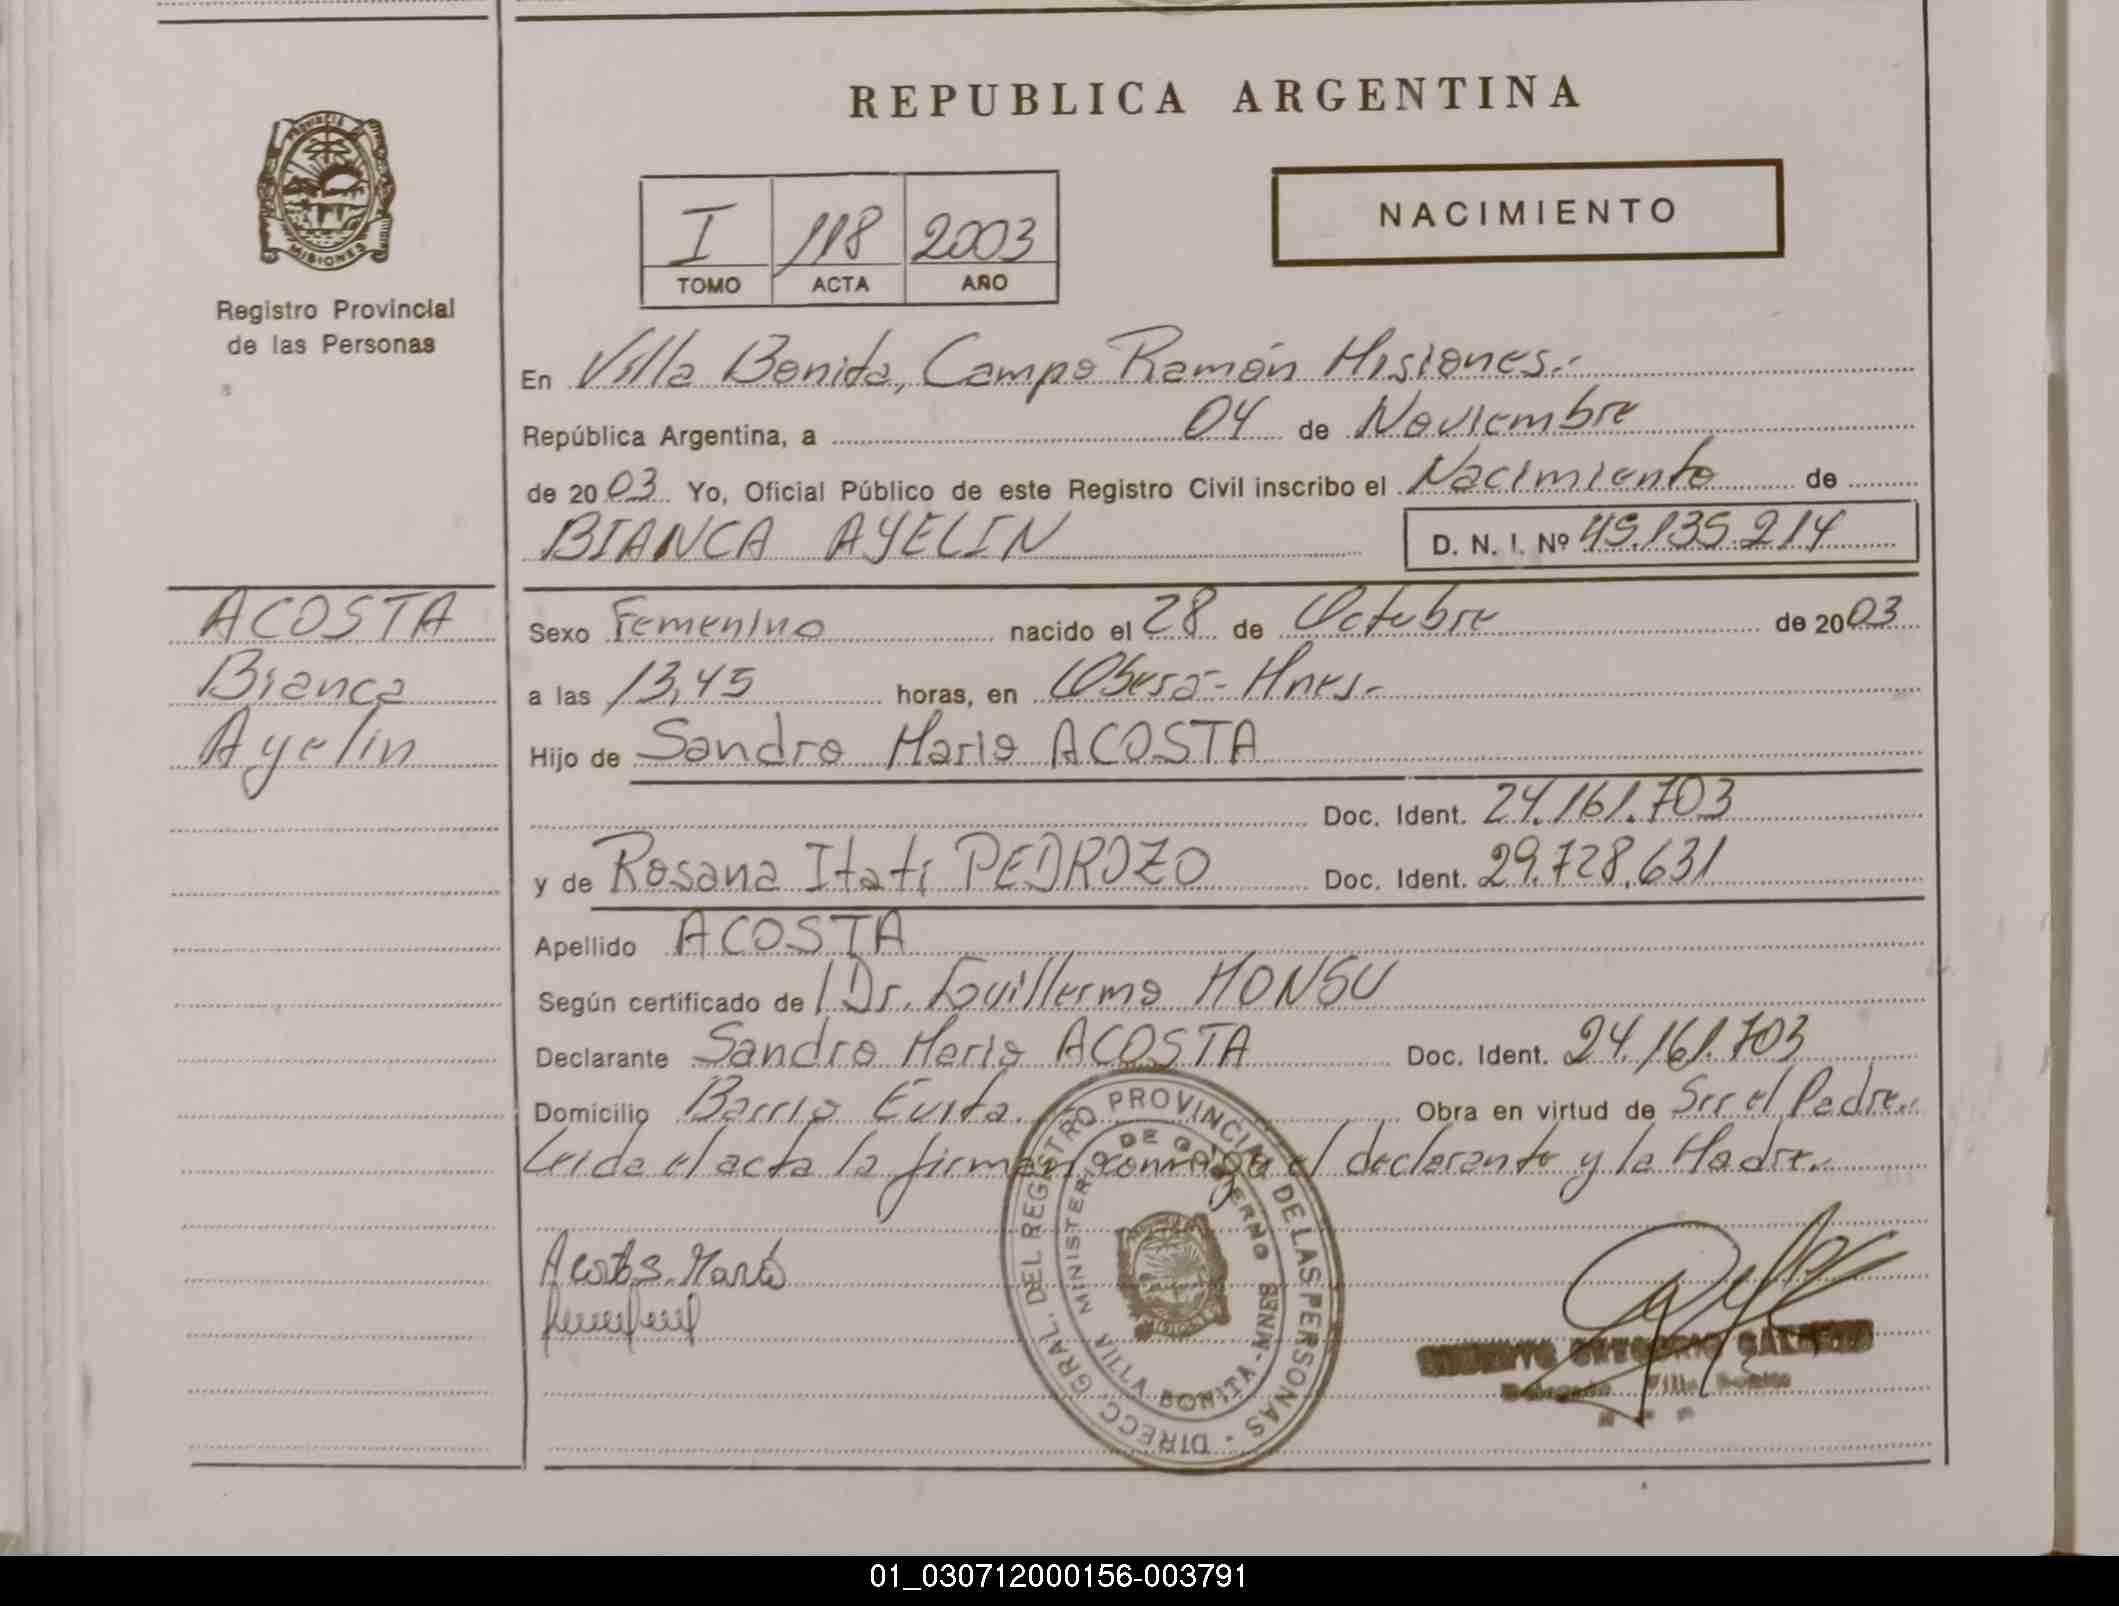 REPUBLICA ARGENTINA
PROVINCIA
MISIONES
Registro Provincial
de las Personas
I 118 2003
TOMO ACTA AÑO
NACIMIENTO
En Villa Bonita, Campo Ramón Misiones.-
República Argentina, a 04 de Noviembre
de 2003 Yo, Oficial Público de este Registro Civil inscribo el Nacimiento de
BIANCA AYELIN D. N. I. Nº 45.135.214
ACOSTA
Bianca
Ayelin
Sexo Femenino nacido el 28 de Octubre de 2003
a las 13,45 horas, en Oberá- Mnes.-
Hijo de Sandro Mario ACOSTA
Doc. Ident. 24.161.703
y de Rosana Itatí PEDROZO Doc. Ident. 29.728.631
Apellido ACOSTA
Según certificado de Dr. Guillermo MONSU
Declarante Sandro Mario ACOSTA Doc. Ident. 24.161.703
Domicilio Barrio Evita. Obra en virtud de Ser el Padre.-
Leida el acta la firman conmigo el declarante y la Madre.-
Acosta S. Mario
DIRECC. GRAL. DEL REGISTRO PROVINCIAL DE LAS PERSONAS -
MINISTERIO DE GOBIERNO
VILLA BONITA - MNES
Villa Bonita
01_030712000156-003791